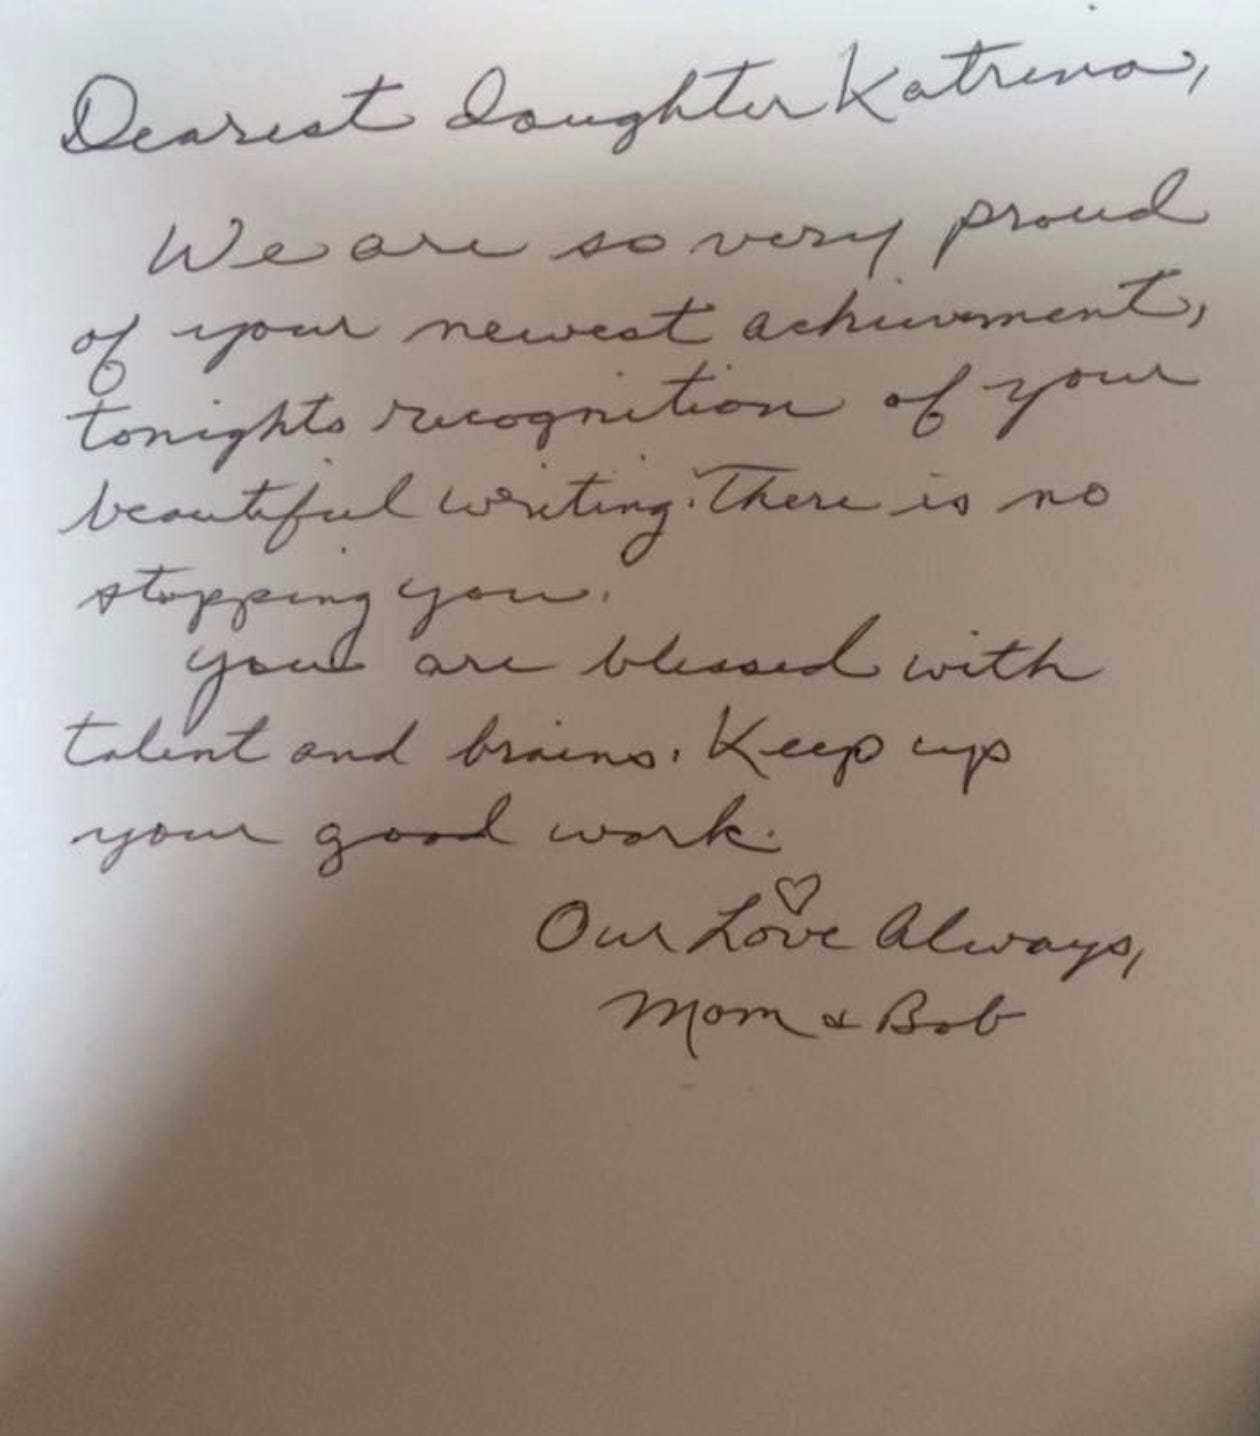 Dearest daughter Katrina,
We are so very proud
of your newest achievement,
tonights recognition of your
beautiful writing. There is no
stopping you.
You are blessed with
talent and brains. Keep up
your good work.
Our Love Always,
Mom & Bob